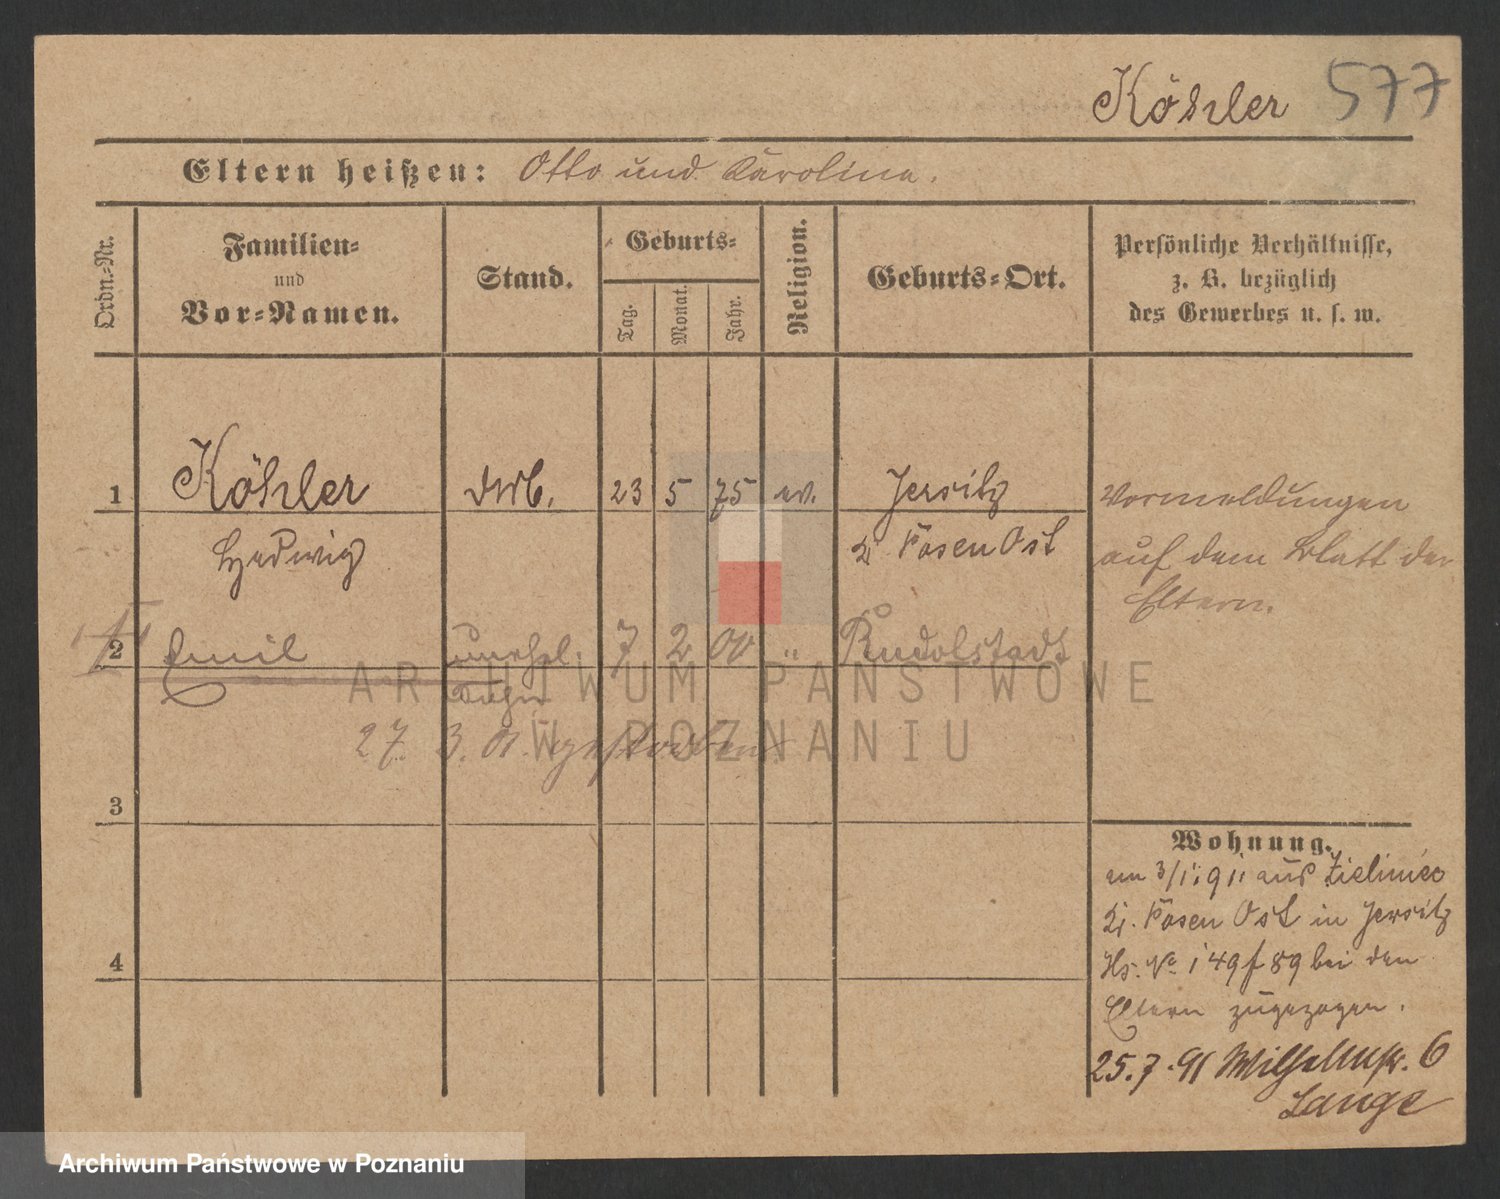 Köhler 577
Eltern heißen: Otto und Karolina.
Ordn.-Nr.
Familien-
und
Vor-Namen.
Stand.
Geburts-
Tag.
Monat.
Jahr.
Religion.
Geburts-Ort.
Persönliche Verhältnisse,
z. B. bezüglich
des Gewerbes u. s. w.
1 Köhler 23 5 75 ev. Jersitz
Hedwig
Kr. Posen Ost
Vormeldungen
auf dem Blatt der
Eltern.
2 Emil unehel. 7 2 00 " Rudolstadt
Sohn
27. 3. 01. gestorben.
3
4
Wohnung.
am 3/1 91 aus Zieliniec
Kr. Posen Ost in Jersitz
Hs. No 149 f 89 bei den
Eltern zugezogen.
25.7.91 Wilhelmstr. 6
Lange
ARCHIWUM PAŃSTWOWE
W POZNANIU
Archiwum Państwowe w Poznaniu